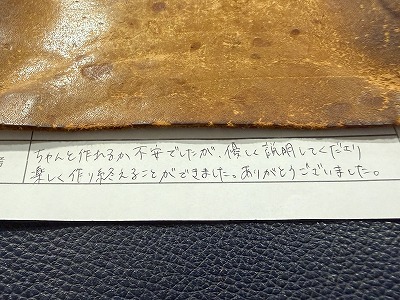 ちゃんと作れるか不安でしたが、優しく説明してくださり
楽しく作り終えることができました。ありがとうございました。